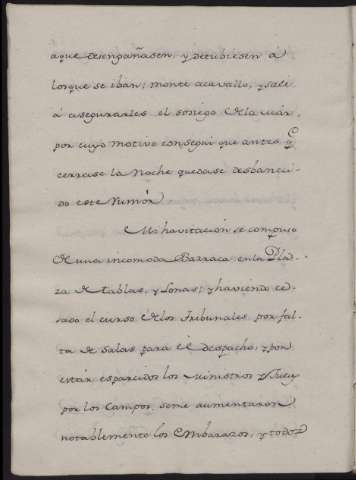 aque desengañasen, y detubiesen á
los que se iban; monte acavallo, y salí
á asegurarles el sosiego de la mar,
por cuyo motivo conseguí que antes q
cerrase la Noche quedase desbaneci-
do este Rumór.
Mi havitación se compuso
de una incomoda Barraca, en la Pla-
za de tablas, y Lonas; y haviendo ce-
sado el curso de los Tribunales por fal-
ta de Salas para el despacho, y por
estár esparcidos los Ministros y Juez
por los Campos, seme aumentaron
notablemente los Embarazos, y todos